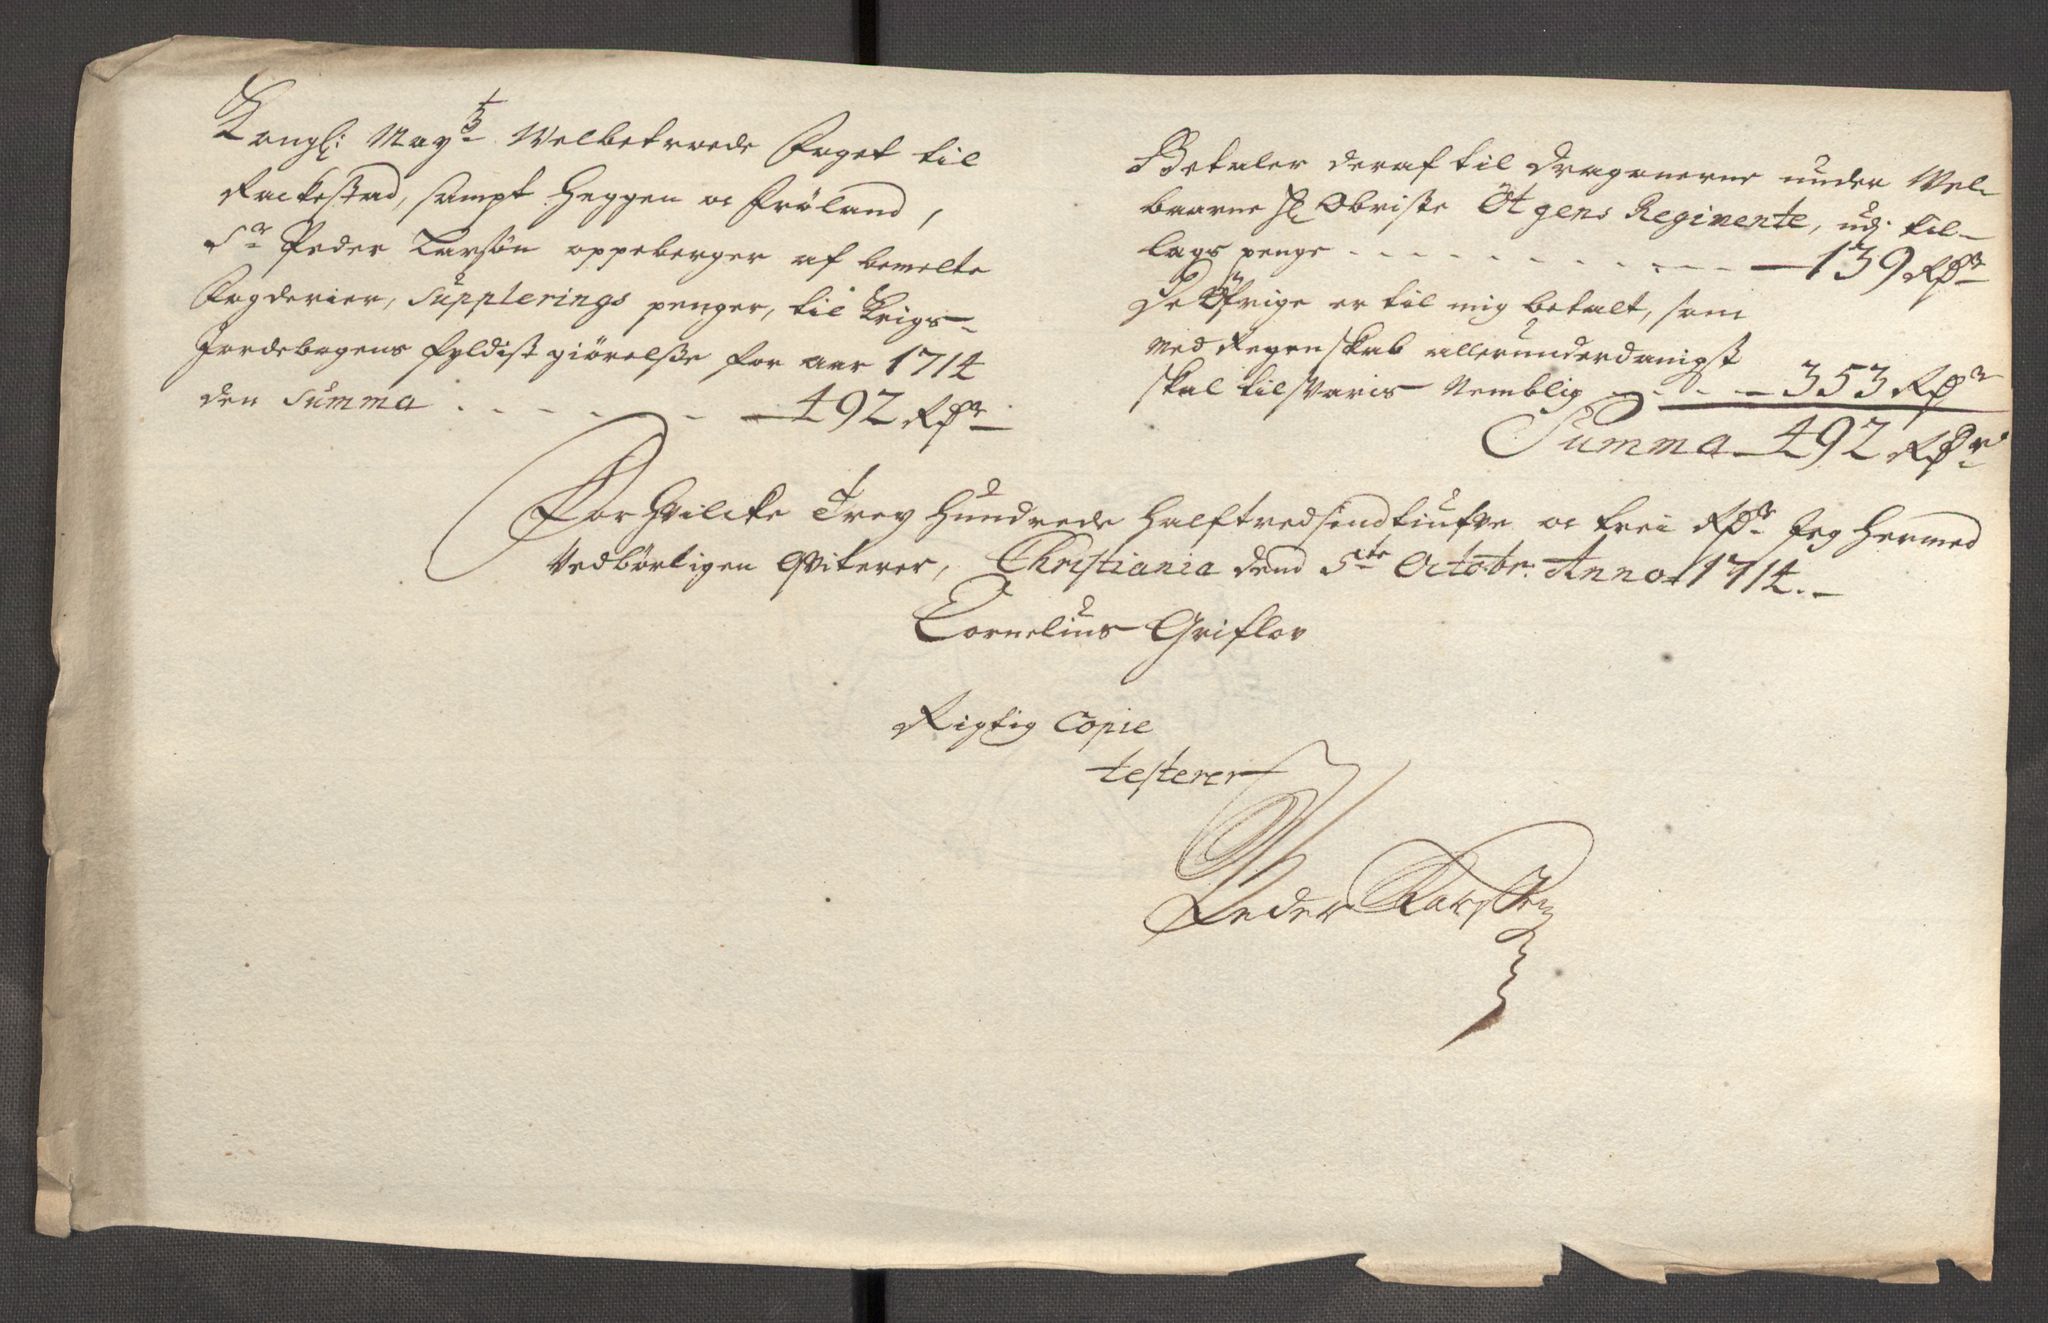 Kongl: May:ts Velbetroede Foget til
Rackestad, sampt Heggen oc Frøland,
Sr Peder Larsøn oppeberger af bemelte
Fogderier, Supplerings penger, til Krigs-
Jordebogens fyldist giørelsse for aar 1714
den Summa - - - - - 492 Rdr
Betaler deraf til Dragonerne under Vel-
baarne Hr Obriste Ötgens Regimente, udj til-
lags penge - - - - - - 139 Rdr
De Öfrige er til mig betalt, som
med Regenskab allerunderdanigst
skal tilsvaris Nemblig - - - 353 Rdr
Summa - 492 Rdr
For Hvilcke Trey Hundrede Halftredsindtiufve oc trei Rdr Jeg Hermed
Vedbørligen Qviterer, Christiania dend 5te Octobr: Anno 1714.
Cornelius Griflov
Rigtig Copie
testerer
Peder Larssen